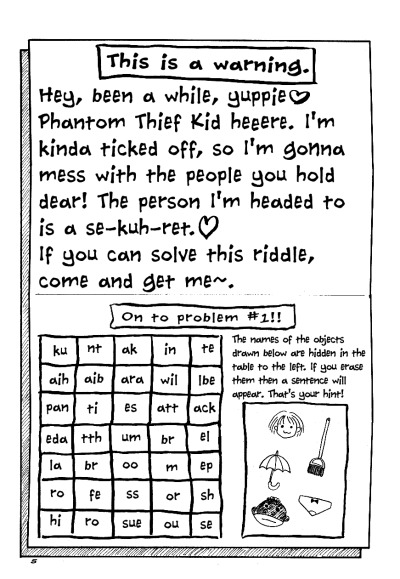 This is a warning.
Hey, been a while, yuppie♡
Phantom Thief Kid heeere. I'm
kinda ticked off, so I'm gonna
mess with the people you hold
dear! The person I'm headed to
is a se-kuh-ret.♡
If you can solve this riddle,
come and get me~.
On to problem #1!!
The names of the objects
drawn below are hidden in the
table to the left. If you erase
them then a sentence will
appear. That's your hint!
ku nt ak in te
aih aib ara wil lbe
pan ti es att ack
eda tth um br el
la br oo m ep
ro fe ss or sh
hi ro sue ou se
5